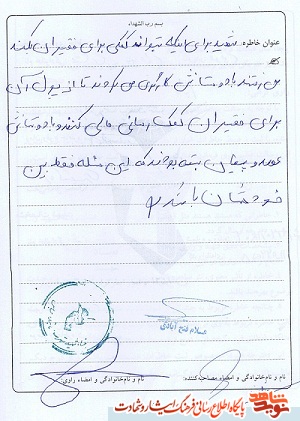 بسم رب الشهداء
عنوان خاطره: شهید برای اینکه بتواند کمکی برای فقیران بکند
می رفتند با دوستانش کارگری می کردند تا از پول آن
برای فقیران کمک رسانی مالی کنند و با دوستانش
عهد و پیمان بسته بودند که این مسئله فقط بین
خودشان باشد
اسلام فتح آبادی
نام و نام‌خانوادگی و امضاء مصاحبه کننده:
نام و نام‌خانوادگی و امضاء راوی:
نوید شاهد
پایگاه اطلاع رسانی فرهنگ ایثار و شهادت